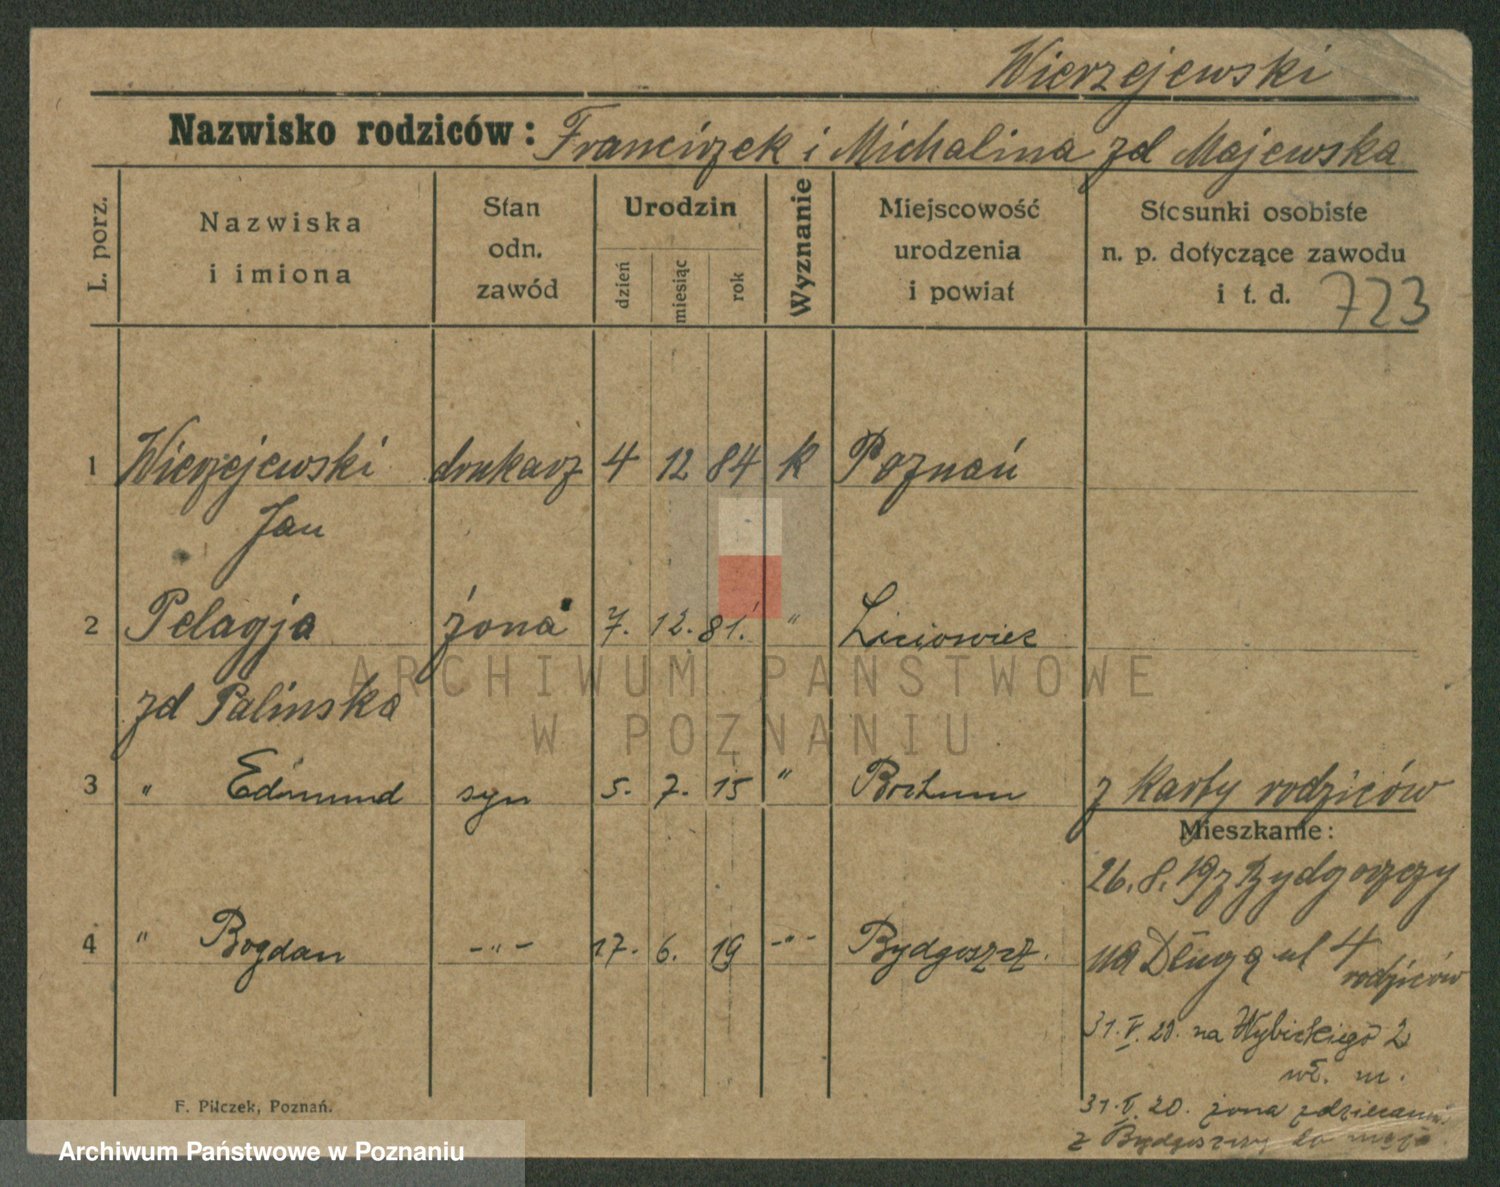 Wierzejewski
Nazwisko rodziców: Franciszek i Michalina zd Majewska
L. porz.
Nazwiska
i imiona
Stan
odn.
zawód
Urodzin
dzień
miesiąc
rok
Wyznanie
Miejscowość
urodzenia
i powiat
Stosunki osobiste
n. p. dotyczące zawodu
i t. d. 723
1 Wierzejewski drukarz 4 12 84 k Poznań
Jan
2 Pelagja żona 7. 12. 81. "
zd Palinska
3 " Edmund syn 5. 7. 15 " Bochum z karty rodziców
Mieszkanie:
26. 8. 19 z Bydgoszczy
4 " Bogdan -"- 17. 6. 19 -"- Bydgoszcz. na Długą ul 4
rodziców
31. V. 20. na Wybickiego 2
wł. m.
31. V. 20. żona z dziecami
z Bydgoszczy do męża
F. Pilczek, Poznań.
ARCHIWUM PAŃSTWOWE
W POZNANIU
Archiwum Państwowe w Poznaniu